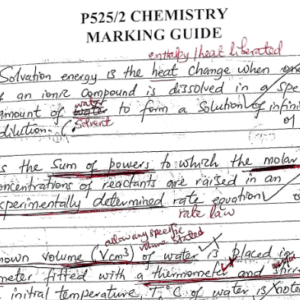 P525/2 CHEMISTRY
MARKING GUIDE
enthalpy/heat liberated
Solvation energy is the heat change when one
of an ionic compound is dissolved in a spe
water
amount of to form a solution of infini
dilution. Solvent of
is the sum of powers to which the molar
concentrations of reactants are raised in an
experimentally determined rate equation
rate law
allow any specific
volume stated
nown volume (Vcm³) of water is placed in
meter fitted with a thermometer and stirre
initial temperature, T₁°C of water is note